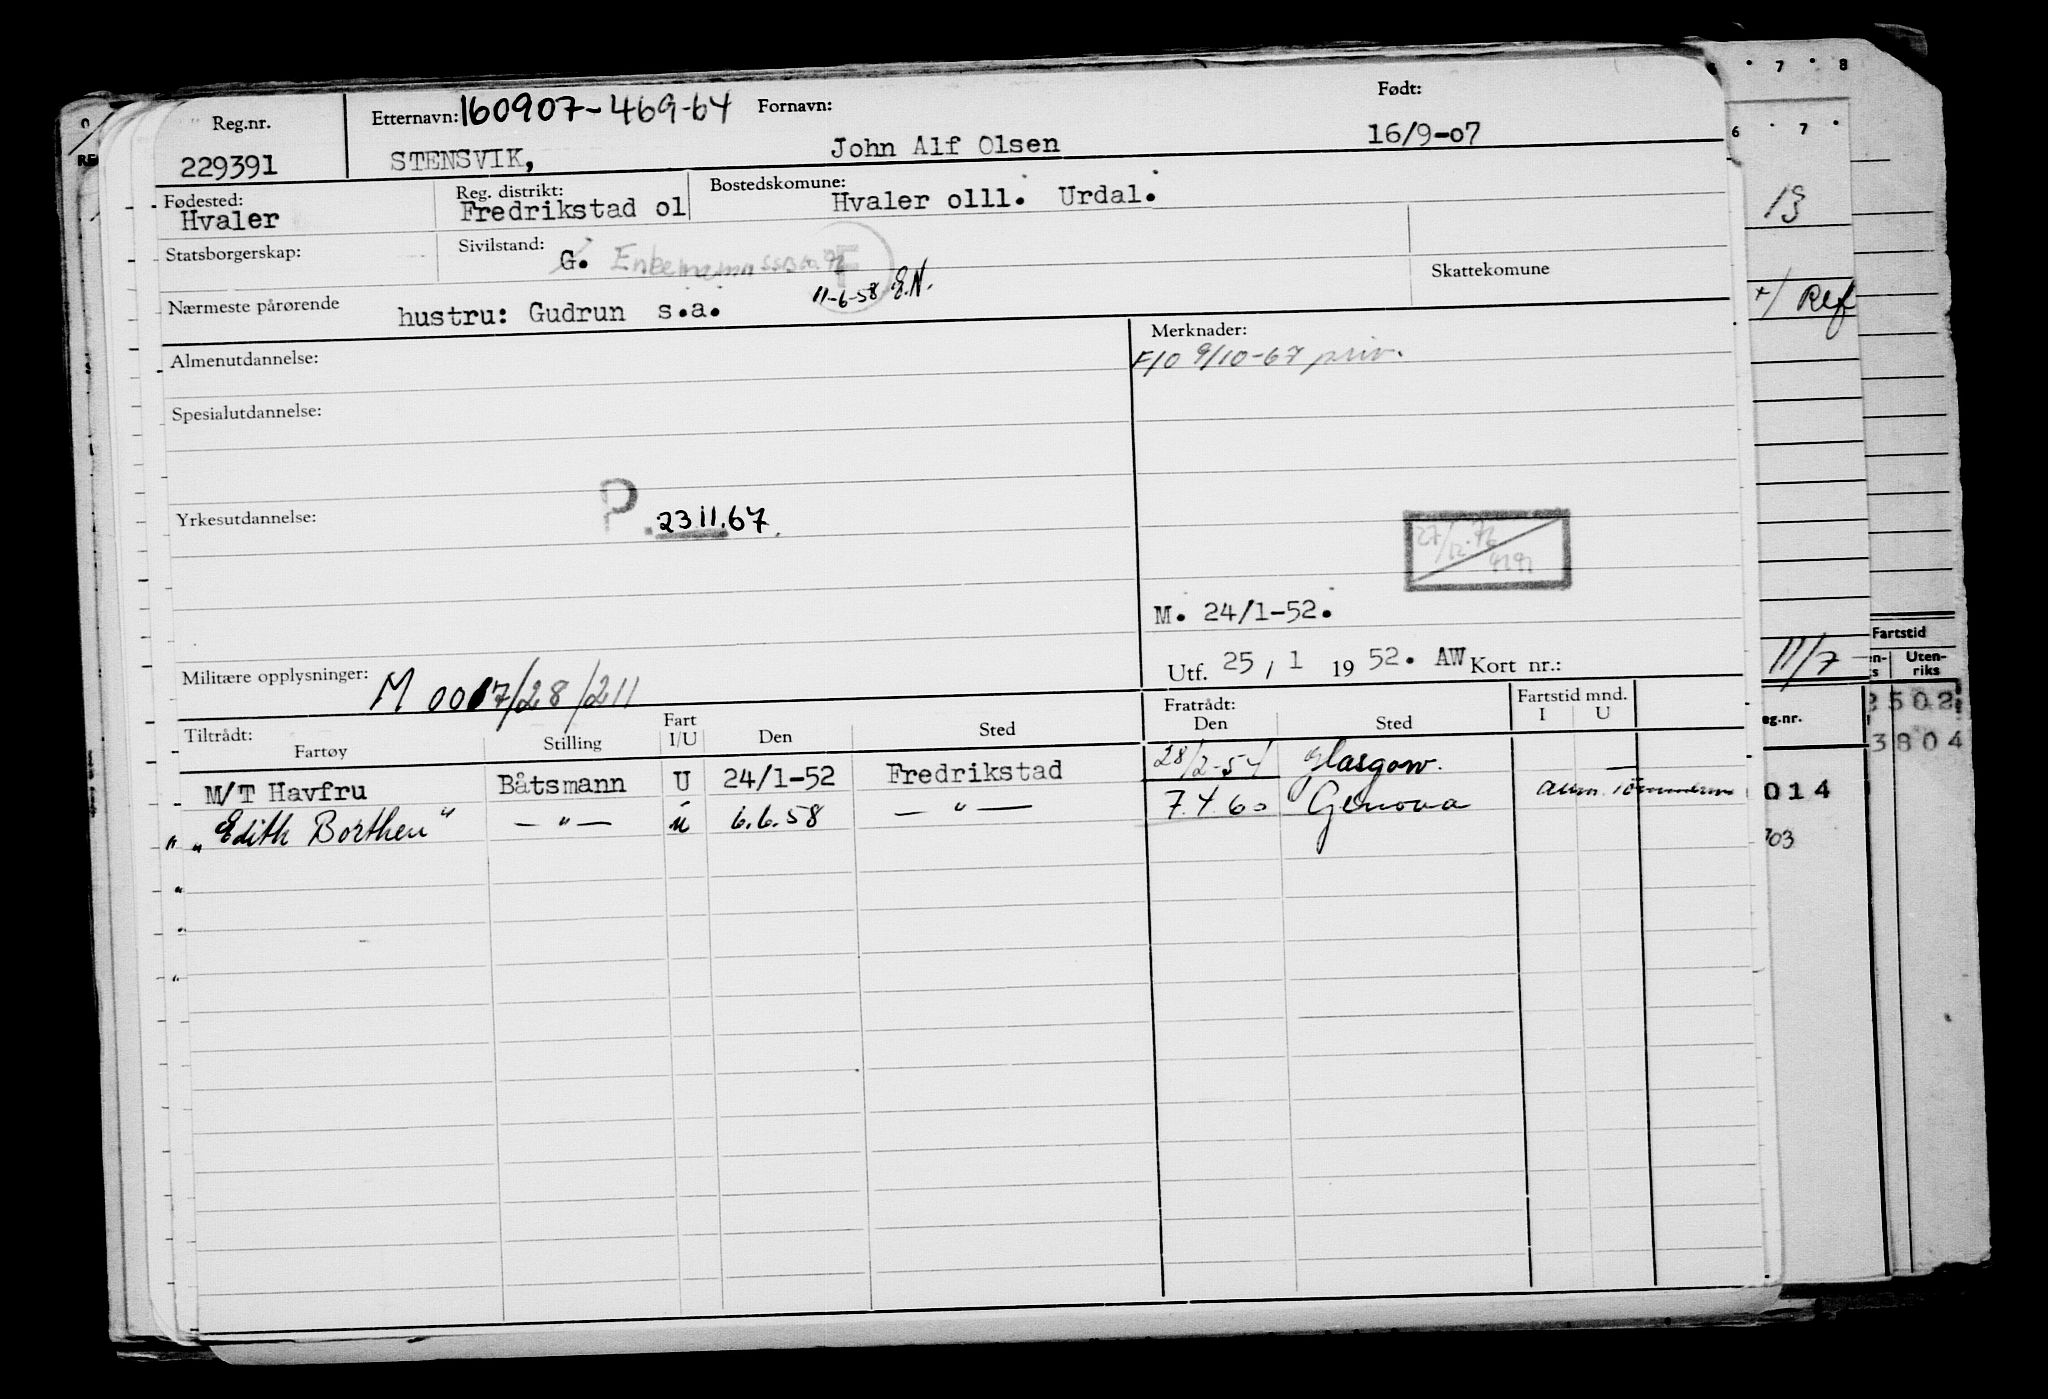 Reg.nr. Etternavn: 160907-469-64 Fornavn: Født:
229391 STENSVIK, John Alf Olsen 16/9-07
Fødested: Reg. distrikt: Bostedskomune:
Hvaler Fredrikstad ol Hvaler olll. Urdal.
Statsborgerskap: Sivilstand: G.
Skattekomune
Nærmeste pårørende hustru: Gudrun s.a. 11-6-58 E.N.
Almenutdannelse: Merknader:
F/O 9/10-67 priv.
Spesialutdannelse:
Yrkesutdannelse: P. 23 11.67.
27/12.
M. 24/1-52.
Militære opplysninger: M 0017/28/211
Utf. 25 / 1 19 52. AW Kort nr.:
Tiltrådt: Fratrådt: Fartstid mnd.
Fartøy Stilling Fart I/U Den Sted Den Sted I U
M/T Havfru Båtsmann U 24/1-52 Fredrikstad 28/2-54 Glasgow. —
" "Edith Borthen" — " — u 6.6.58 — " — 7.4.60 Genova
6 7 8
6 7
13
+/ Ref
11/7
Fartstid
Uten-
riks
eg.nr.
2502
3804
014
703